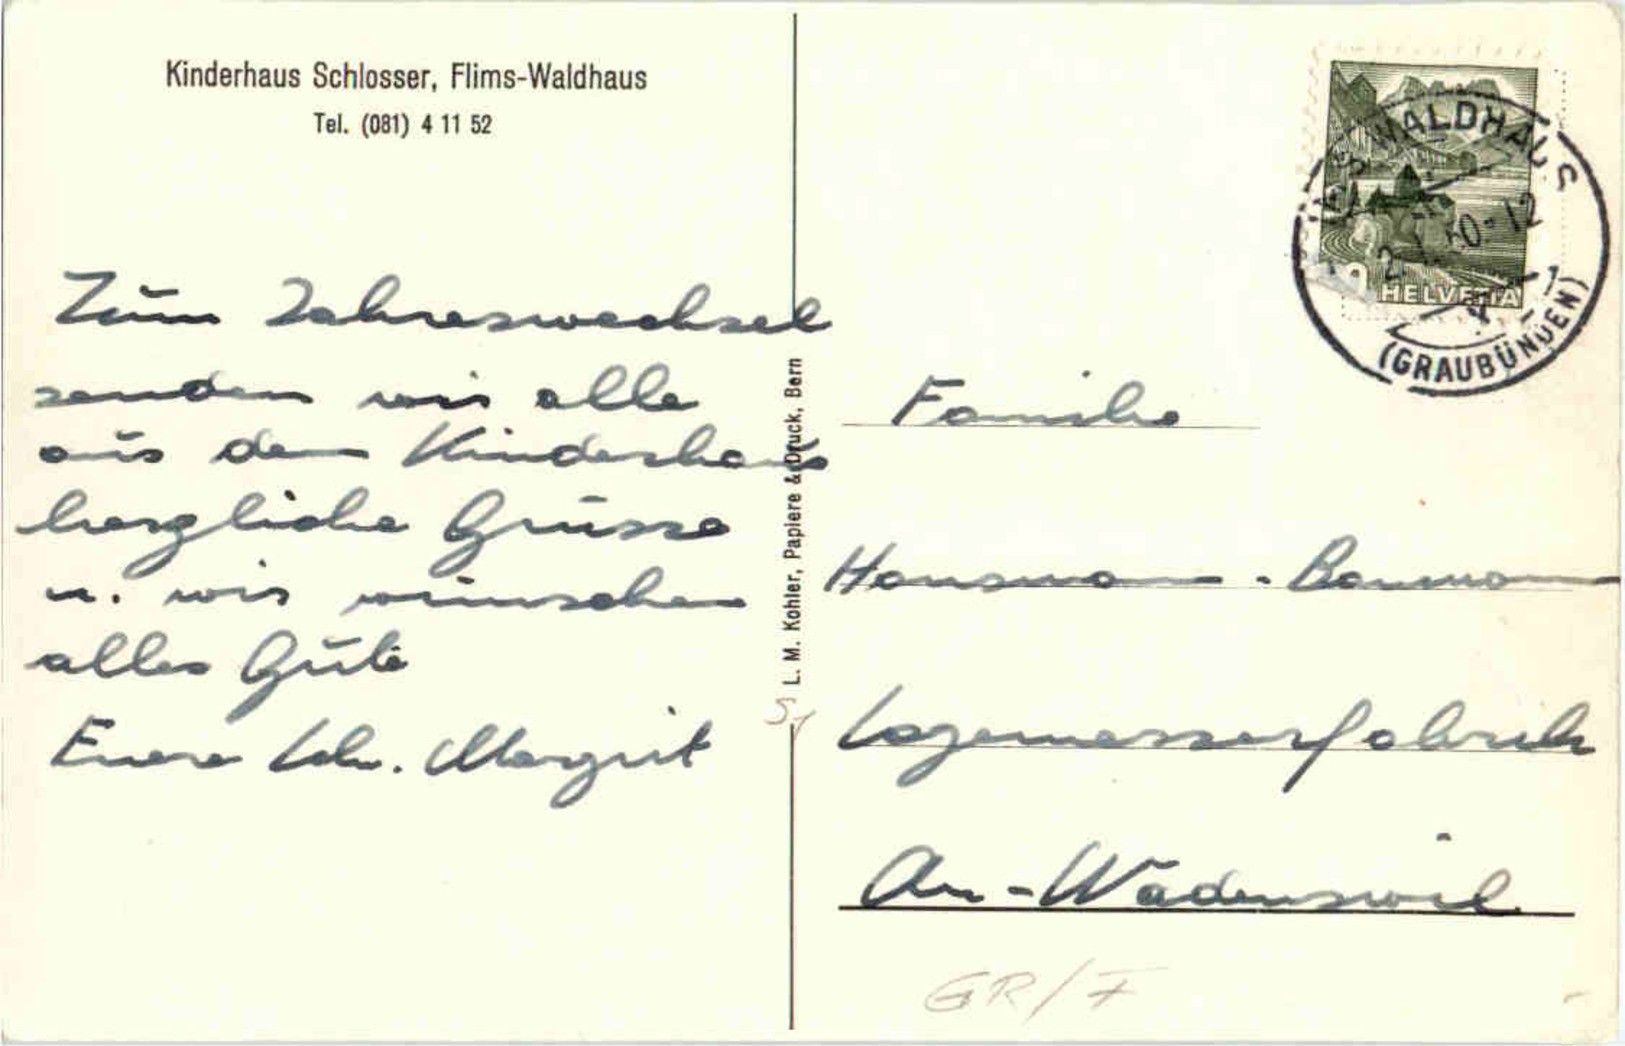 Kinderhaus Schlosser, Flims-Waldhaus
Tel. (081) 4 11 52
Zum Jahreswechsel
senden wir alle
aus dem Kinderhaus
herzliche Grüsse
u. wir wünschen
alles Gute
Euere Schw. Margrit
L. M. Kohler, Papiere & Druck, Bern
WALDHAUS
(GRAUBÜNDEN)
HELVETIA
Familie
Hausmann - Baumann
Au - Wädenswil
GR/F